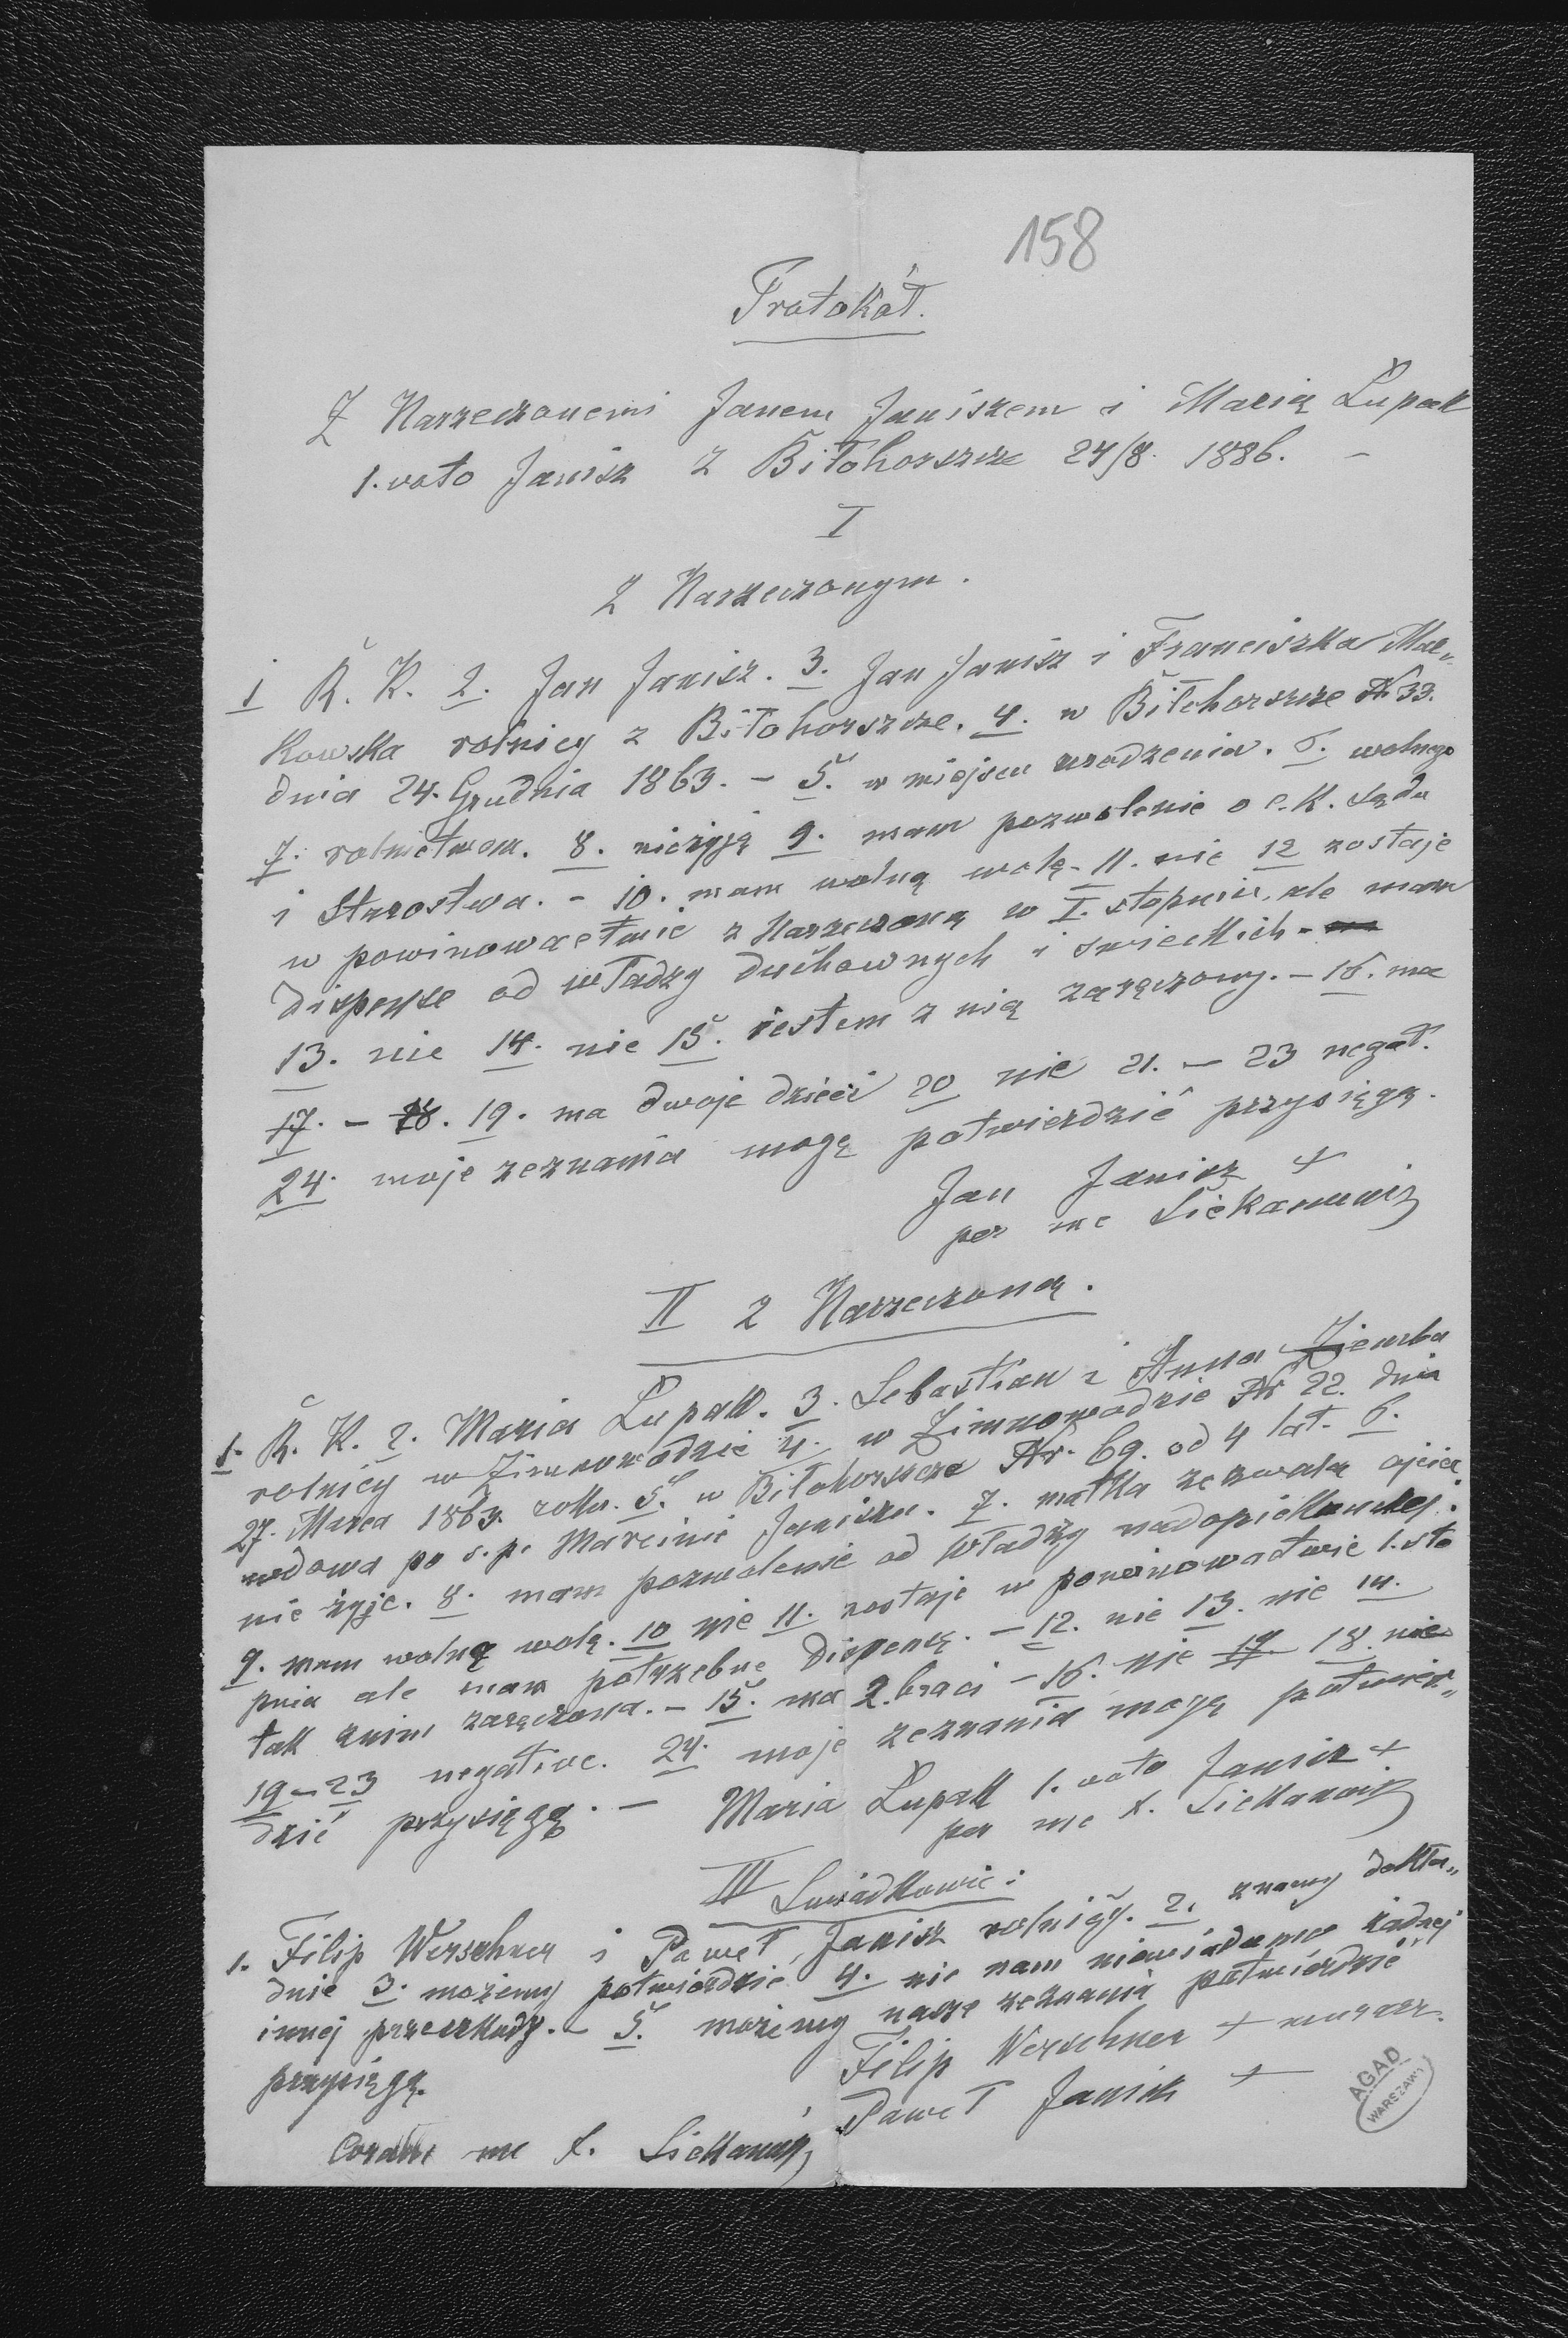 158
Protokół.
Z Narzeczonemi Janem Janiszem i Marią Łupak
1. voto Janisz z Biłohorszcze 24/8. 1886. –
I
Z Narzeczonym.
1 R. K. 2. Jan Janisz. 3. Jan Janisz i Franciszka Mal„
kowska rolnicy z Biłohorszcze. 4. w Biłohorszcze N 33.
dnia 24. Grudnia 1863. – 5. w miejscu urodzenia. 6. wolnego
7. rolnictwem. 8. nieżyją 9. mam pozwolenie o c. k. Sądu
i Starostwa. – 10. mam wolną wolę – 11. nie 12 zostaje
w powinowactwie z Narzeczoną w I. stopniu, ale mam
dispense od władzy duchownych i swieckich –
13. nie 14. nie 15. iestem z nią zaręczony. – 16. ma
17. – 18. 19. ma dwoje dzieci 20 nie 21. – 23 negat.
24. moje zeznania mogę potwierdzić przysięgą.
Jan Janisz +
per me Siekanowicz
II z Narzeczoną.
1. R. K. 2. Maria Łupak. 3. Sebastian i Anna Ziemba
rolnicy w Zimnowodzie 4. w Zimnowodzie Nr 22. dnia
27. Marca 1863. roku. 5. w Biłohorszcze Nr. 69. od 4 lat. 6.
wdowa po s. p. Marcinie Janiszu. 7. matka zezwala ojciec
nie żyje. 8. mam pozwolenie od Władzy nadopiekunczej.
9. mam wolną wolę. 10 nie 11. zostaje w powinowactwie 1. sto
pnia ale mam potrzebne dispensę. – 12. nie 13. nie 14.
tak znim zaręczona. – 15. ma 2. braci – 16. nie 17 18. nie
19–23 negative. 24. moje zeznania mogę potwier„
dzić przysięgą. – Maria Łupak 1. voto Janisz +
per me X. Siekanowicz
III Swiadkowie:
1. Filip Werschner i Paweł Janisz rolnicy. 2. znamy dokła„
dnie 3. możemy potwierdzić 4. nie nam niewiadomo żadnej
innej przeszkody. – 5. możemy nasze zeznania potwierdzić
przysięgą.
Filip Werschner +
Paweł Janisz +
Coram me X. Siekanowicz
AGAD
WARSZAWA